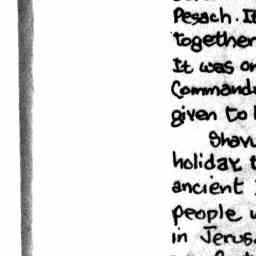 Pesach. It
together
It was on
Command
given to
Shavu
holiday t
ancient
people w
in Jerus